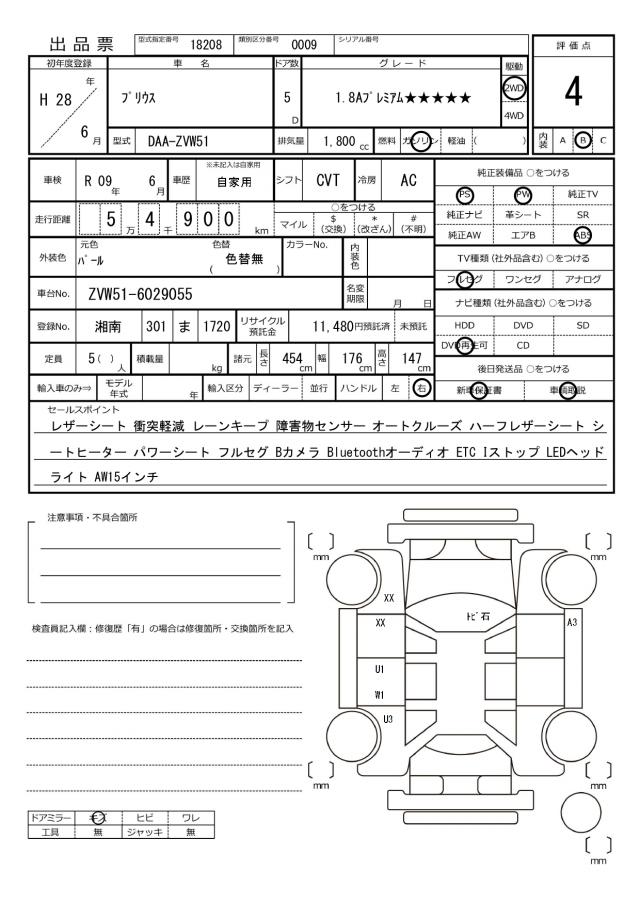 出品票 型式指定番号 18208 類別区分番号 0009 シリアル番号
初年度登録 車名 ドア数 グレード 駆動 評価点
H 28 年 6 月 プリウス 5 D 1.8Aプレミアム★★★★★ 2WD 4WD 4
型式 DAA-ZVW51 排気量 1,800 cc 燃料 ガソリン 軽油 ( ) 内装 A B C
車検 R 09 年 6 月 車歴 ※未記入は自家用 自家用 シフト CVT 冷房 AC
走行距離 5 万 4 千 9 0 0 km ○をつける マイル $(交換) *(改ざん) #(不明)
外装色 元色 パール 色替 ( 色替無 ) カラーNo. 内装色
車台No. ZVW51-6029055 名変期限 月 日
登録No. 湘南 301 ま 1720 リサイクル預託金 11,480円預託済 未預託
定員 5 ( ) 人 積載量 kg 諸元 長さ 454 cm 幅 176 cm 高さ 147 cm
輸入車のみ⇒ モデル年式 年 輸入区分 ディーラー 並行 ハンドル 左 右
純正装備品 ○をつける
PS PW 純正TV
純正ナビ 革シート SR
純正AW エアB ABS
TV種類 (社外品含む) ○をつける
フルセグ ワンセグ アナログ
ナビ種類 (社外品含む) ○をつける
HDD DVD SD
DVD再生可 CD
後日発送品 ○をつける
新車保証書 車輌取説
セールスポイント
レザーシート 衝突軽減 レーンキープ 障害物センサー オートクルーズ ハーフレザーシート シ
ートヒーター パワーシート フルセグ Bカメラ Bluetoothオーディオ ETC Iストップ LEDヘッド
ライト AW15インチ
注意事項・不具合箇所
検査員記入欄：修復歴「有」の場合は修復箇所・交換箇所を記入
mm
mm
XX
トビ石
XX
A3
U1
W1
U3
mm
mm
mm
ドアミラー キズ ヒビ ワレ
工具 無 ジャッキ 無